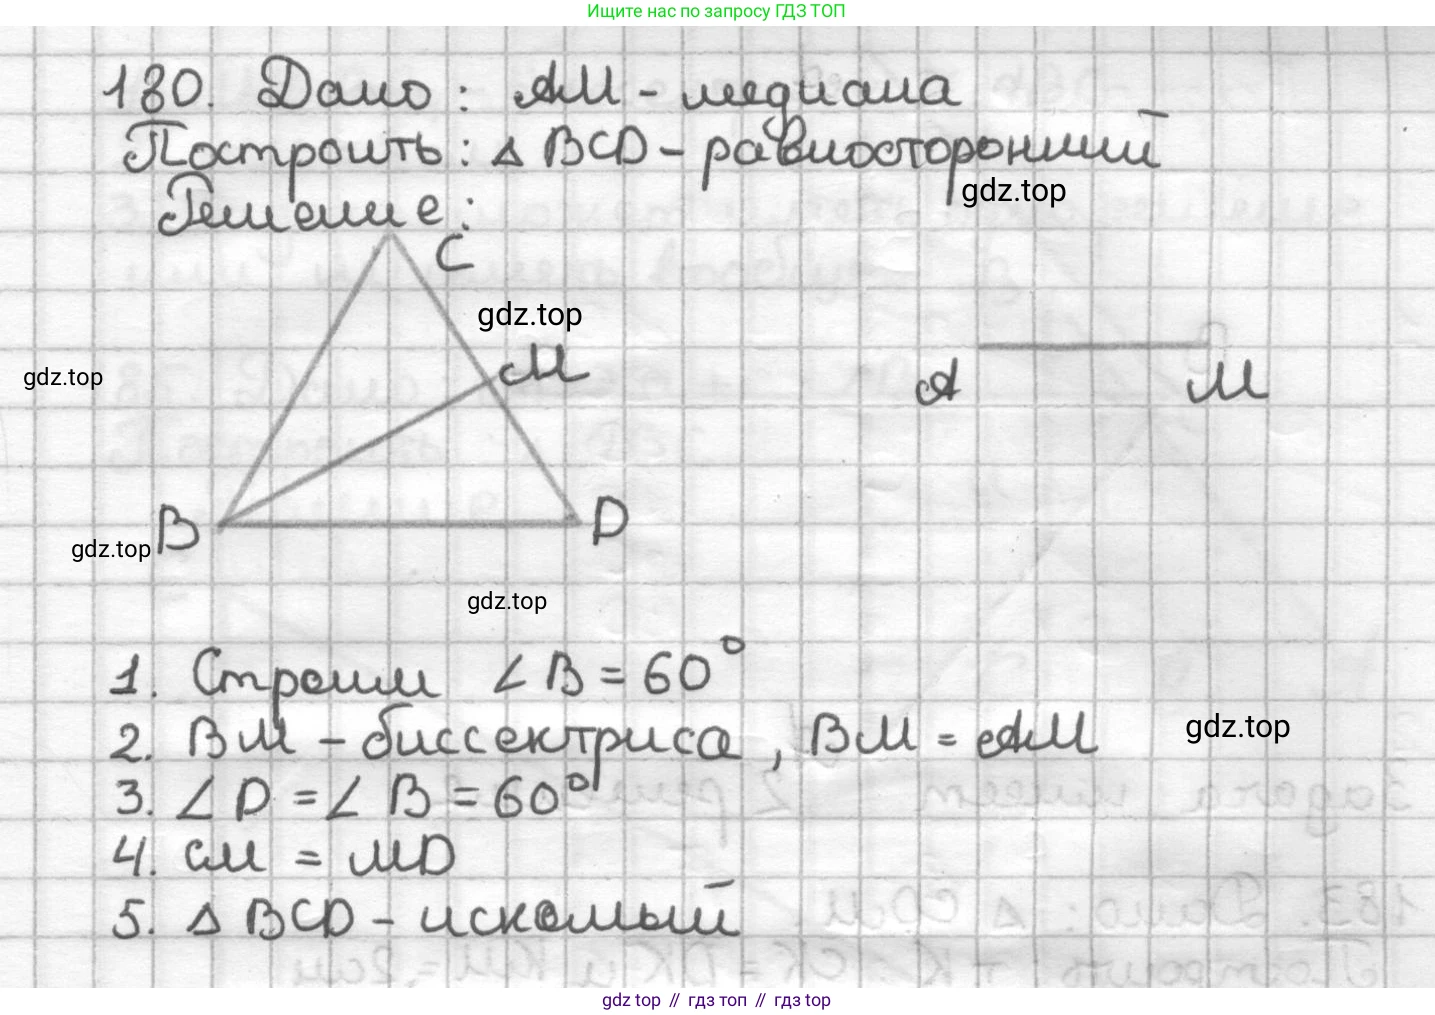 Ищите нас по запросу ГДЗ ТОП
180. Дано: AM - медиана
Построить: △ BCD - равносторонний
gdz.top
Решение:
C
gdz.top
M
gdz.top
A M
B D
gdz.top
gdz.top
1. Строим ∠ B = 60°
2. BM - биссектриса, BM = AM
gdz.top
3. ∠ D = ∠ B = 60°
4. CM = MD
5. △ BCD - искомый
gdz top // гдз топ // gdz top